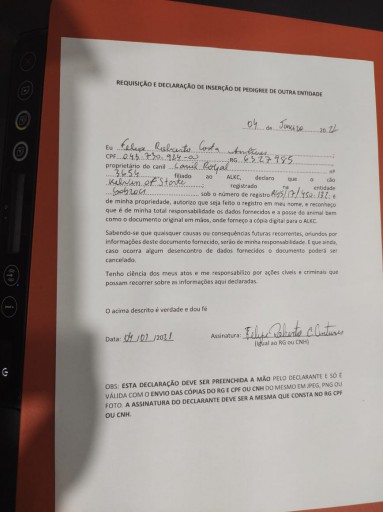 REQUISIÇÃO E DECLARAÇÃO DE INSERÇÃO DE PEDIGREE DE OUTRA ENTIDADE
04 de Janeiro 20 21
Eu Felipe Roberto Costa
CPF 043.790.924-00 RG 6527985
proprietário do canil Canil Royal nº
3654 filiado ao ALKC, declaro que o cão
of Stark registrado na entidade
Sobraci sob o número de registro e
de minha propriedade, autorizo que seja feito o registro em meu nome, e reconheço
que é de minha total responsabilidade os dados fornecidos e a posse do animal bem
como o documento original em mãos, onde forneço a cópia digital para o ALKC.
Sabendo-se que quaisquer causas ou consequências futuras recorrentes, oriundos por
informações deste documento fornecido, serão de minha responsabilidade. E que ainda,
caso ocorra algum desencontro de dados fornecidos o documento poderá ser
cancelado.
Tenho ciência dos meus atos e me responsabilizo por ações cíveis e criminais que
possam recorrer sobre as informações aqui declaradas.
O acima descrito é verdade e dou fé
Data: 04 /01 /2021 Assinatura: Felipe Roberto C
(igual ao RG ou CNH)
OBS: ESTA DECLARAÇÃO DEVE SER PREENCHIDA A MÃO PELO DECLARANTE E SÓ É
VÁLIDA COM O ENVIO DAS CÓPIAS DO RG E CPF OU CNH DO MESMO EM JPEG, PNG OU
FOTO. A ASSINATURA DO DECLARANTE DEVE SER A MESMA QUE CONSTA NO RG CPF
OU CNH.